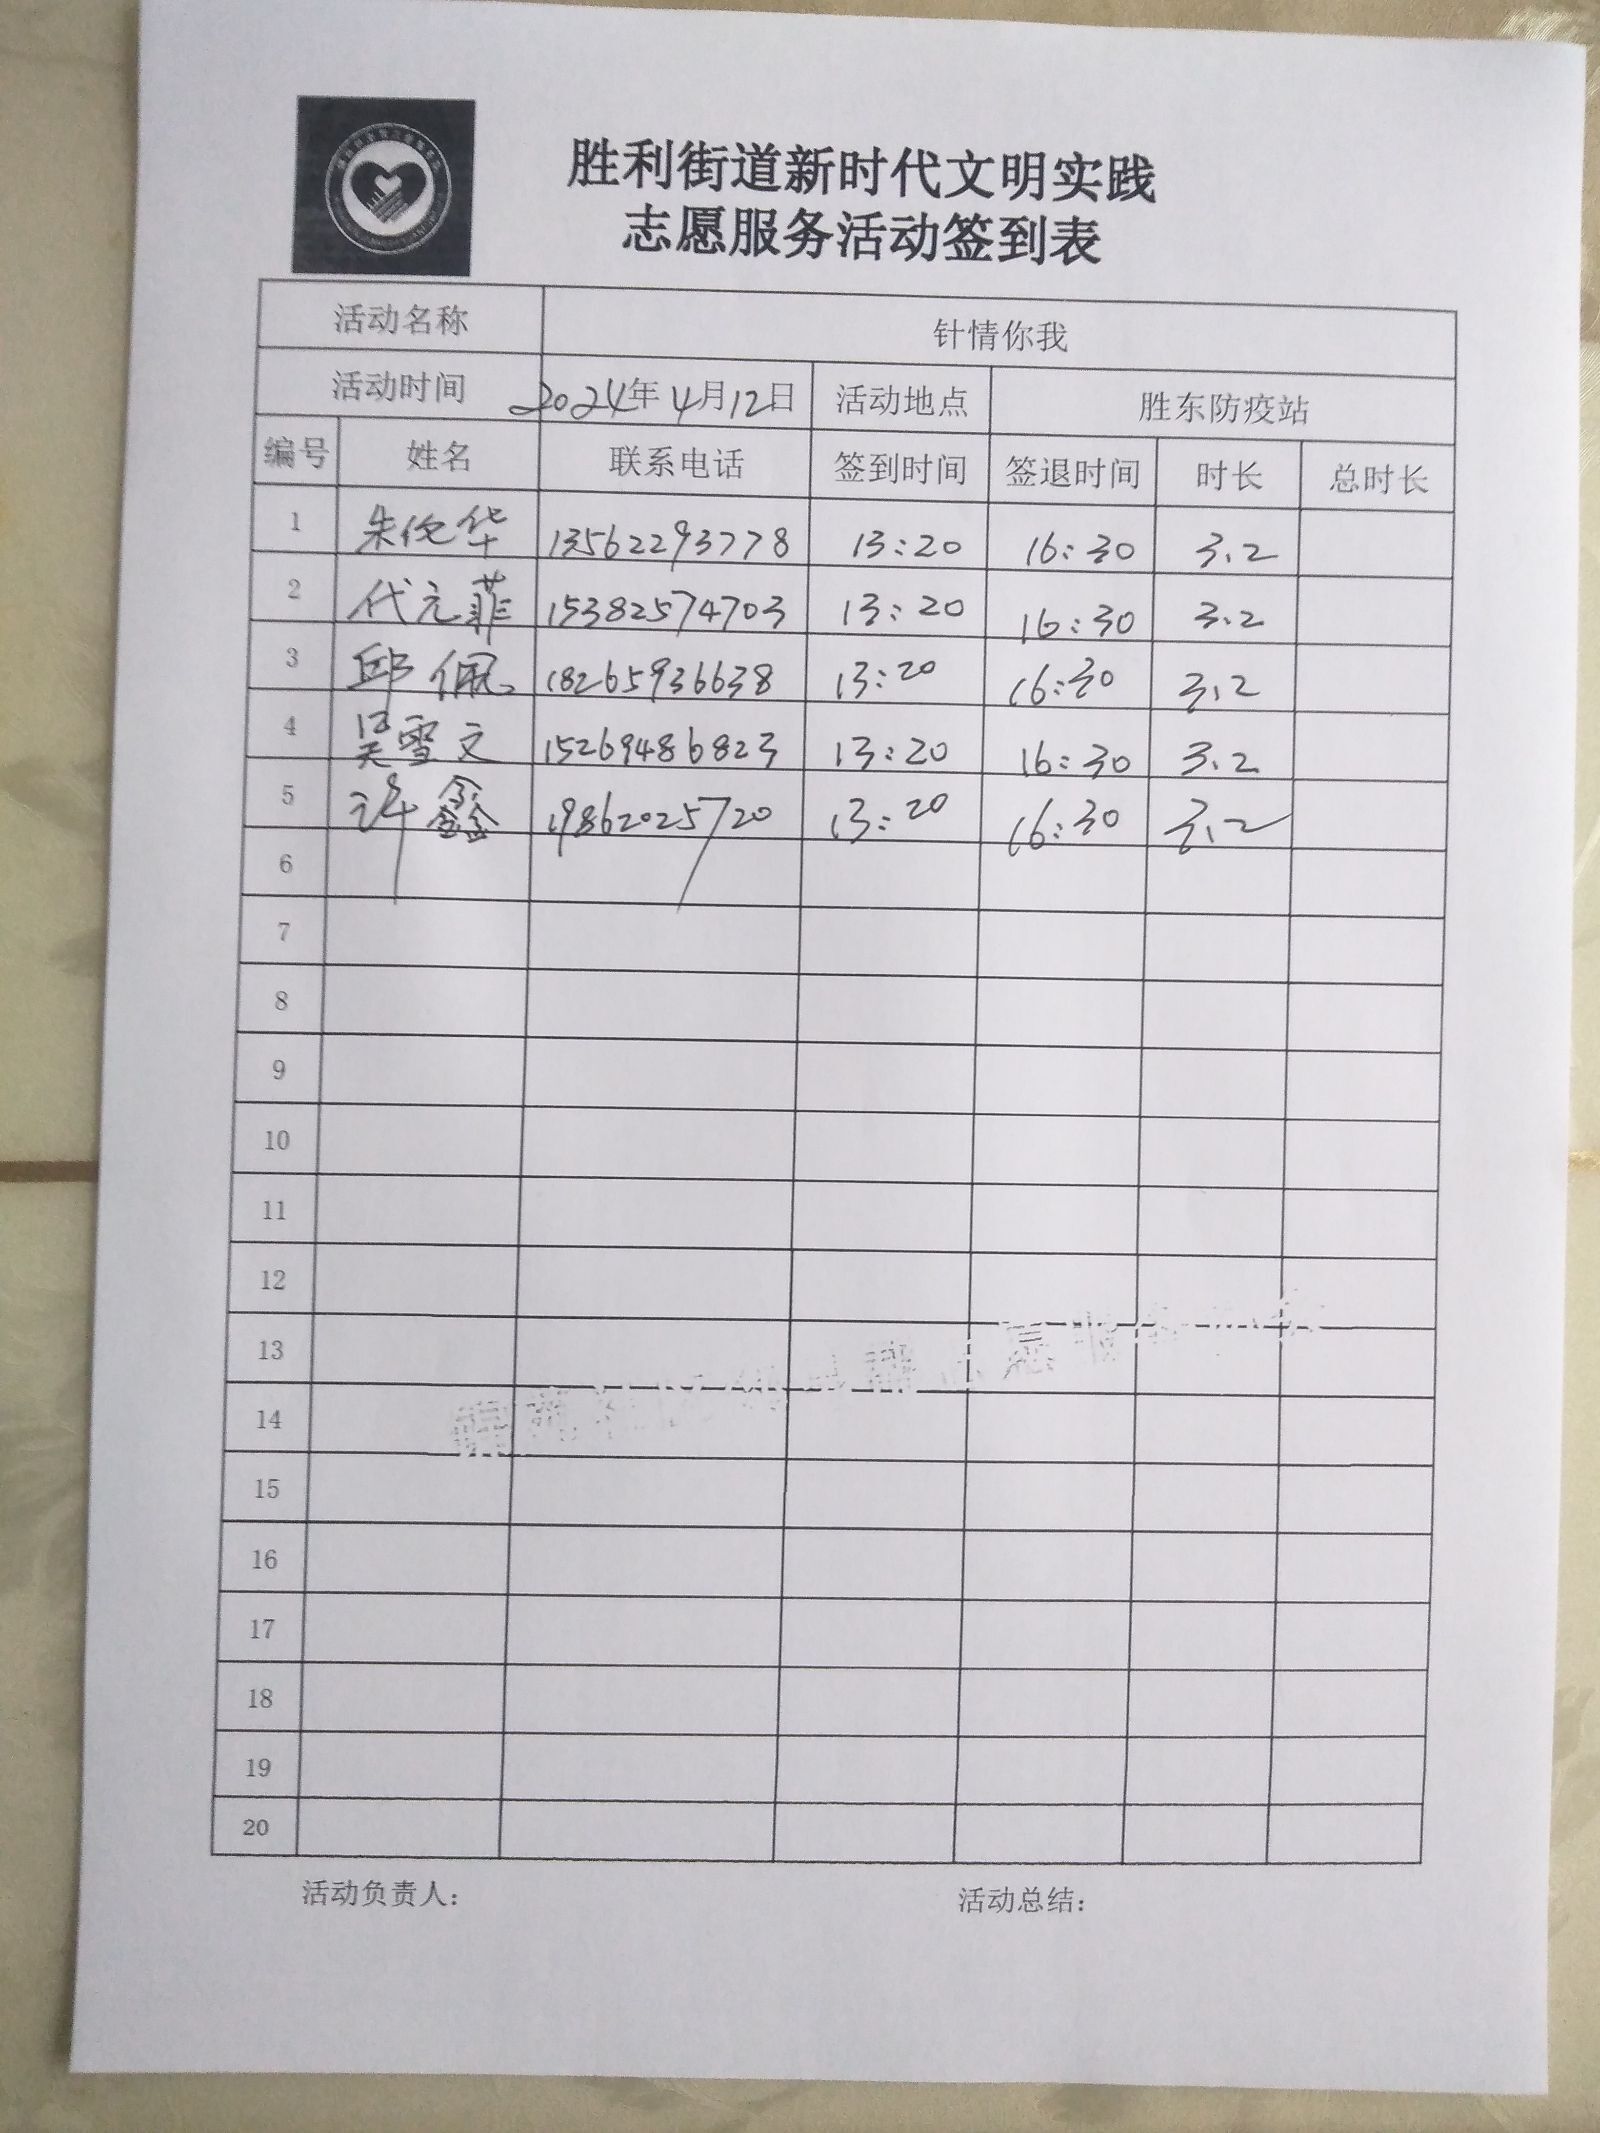 胜利街道新时代文明实践
志愿服务活动签到表
活动名称 针情你我
活动时间 2024年4月12日 活动地点 胜东防疫站
编号 姓名 联系电话 签到时间 签退时间 时长 总时长
1 朱伦华 13562293778 13:20 16:30 3.2
2 代元菲 15382574703 13:20 16:30 3.2
3 邱佩 18265936638 13:20 16:30 3.2
4 吴雪文 15269486823 13:20 16:30 3.2
5 许鑫 19862025720 13:20 16:30 3.2
6
7
8
9
10
11
12
13
14
15
16
17
18
19
20
活动负责人: 活动总结: